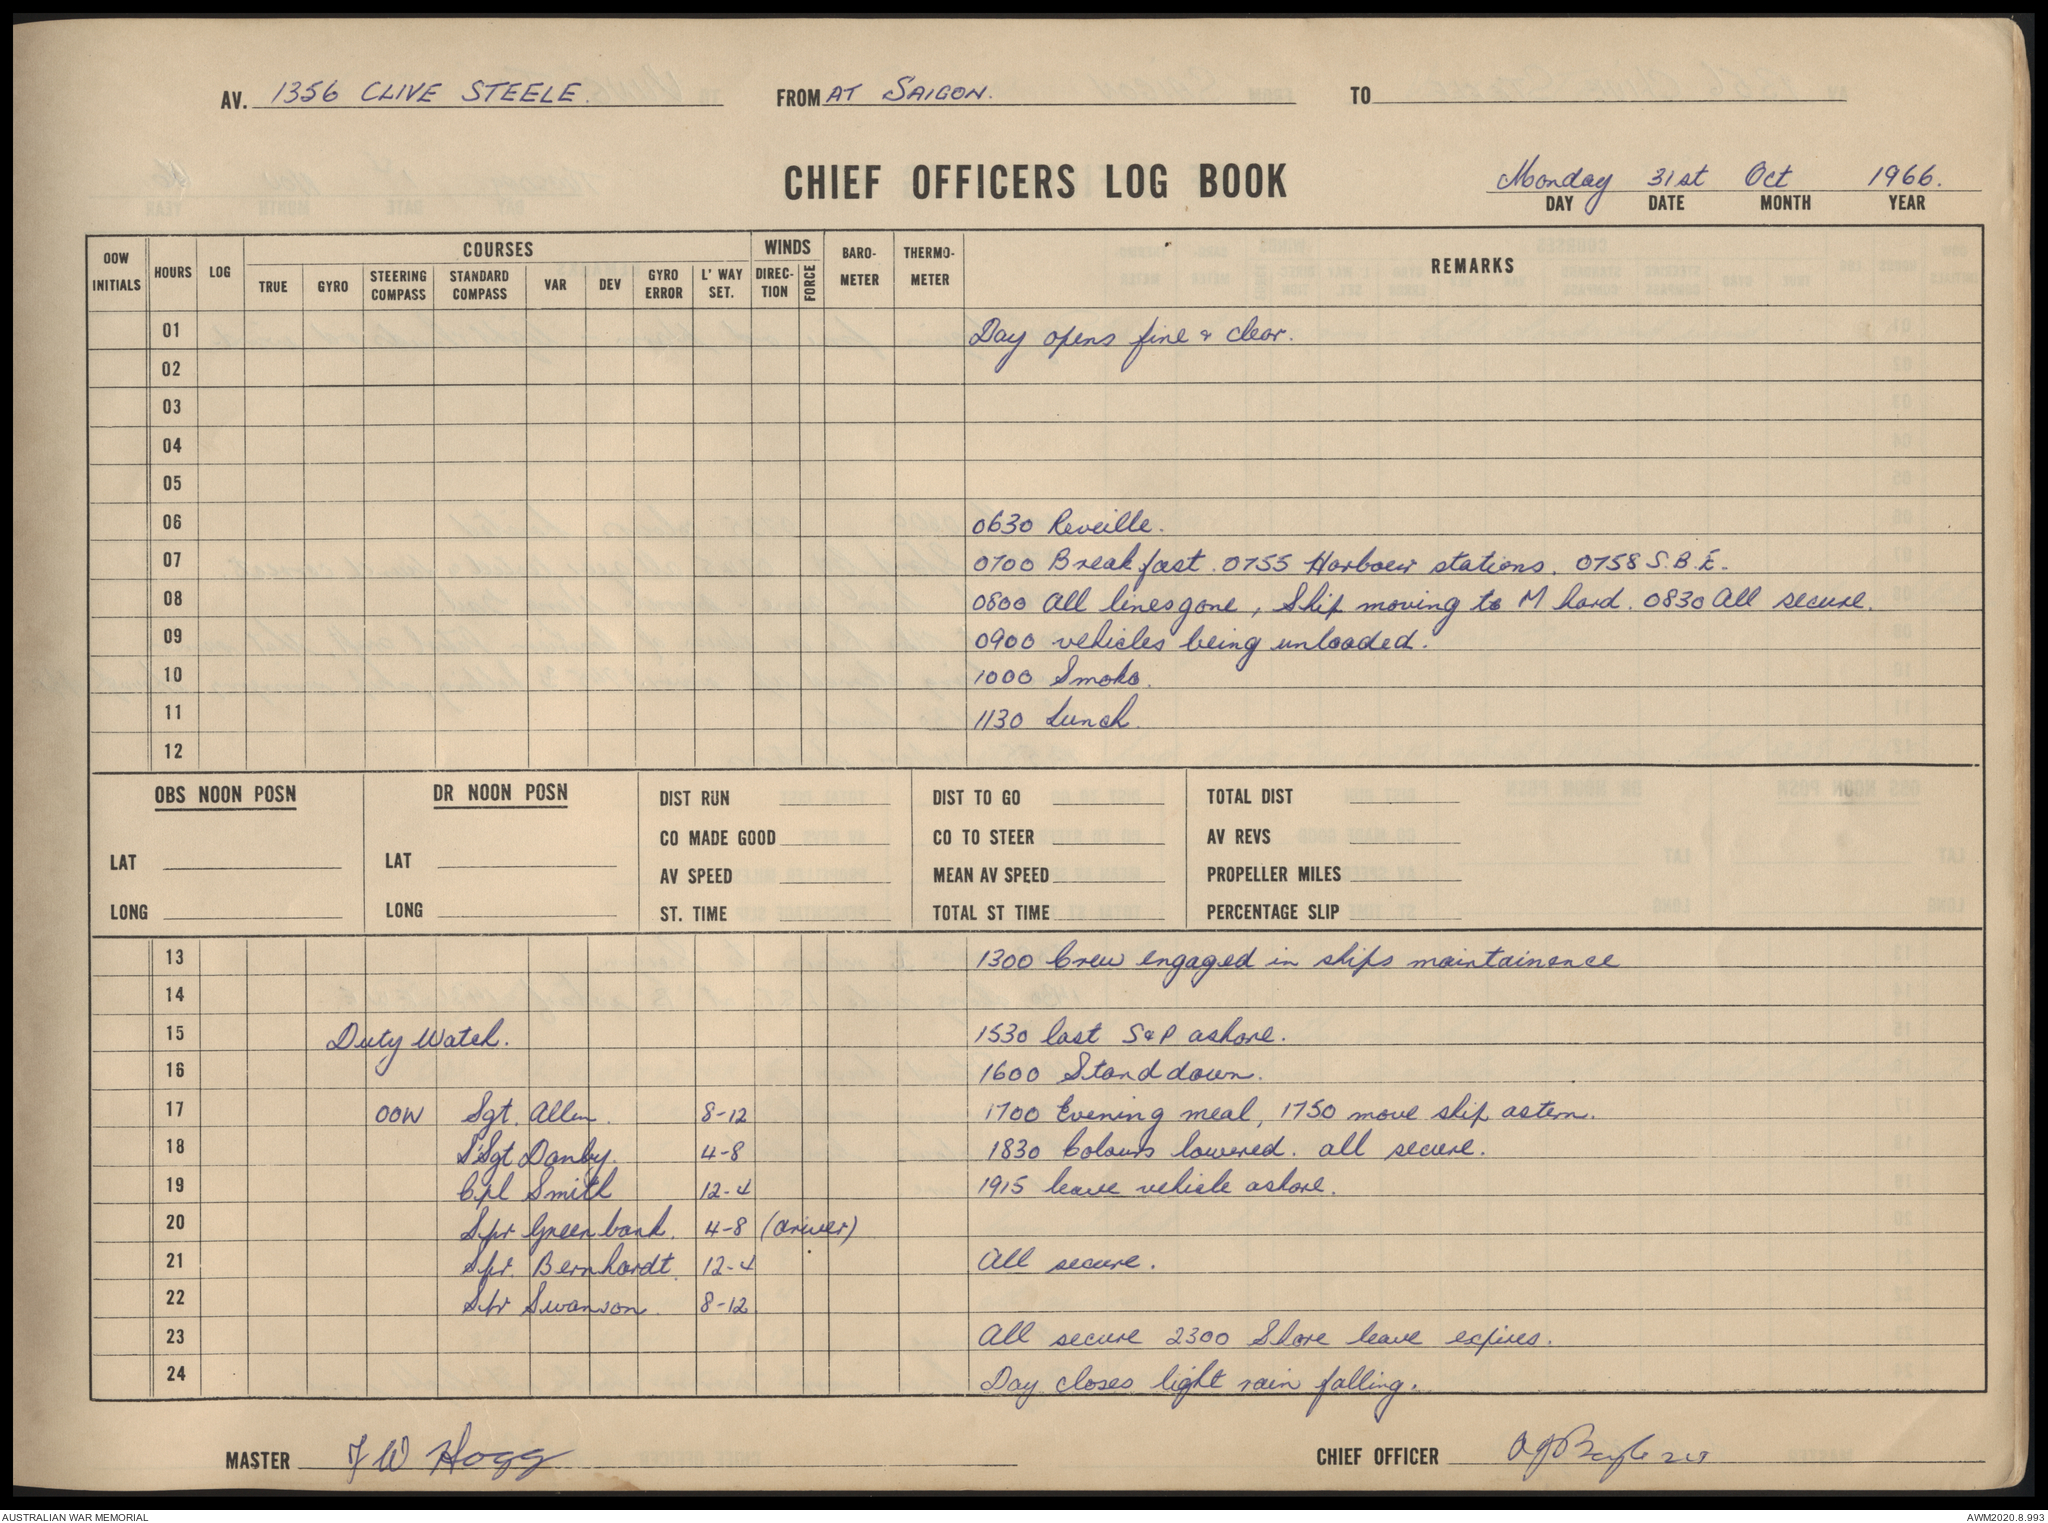 AV. 1356 CLIVE STEELE. FROM AT SAIGON. TO
CHIEF OFFICERS LOG BOOK
Monday 31st Oct 1966.
DAY DATE MONTH YEAR
OOW INITIALS HOURS LOG COURSES WINDS BARO-METER THERMO-METER REMARKS
TRUE GYRO STEERING COMPASS STANDARD COMPASS VAR DEV GYRO ERROR L' WAY SET. DIREC-TION FORCE
01 Day opens fine & clear.
02
03
04
05
06 0630 Reveille.
07 0700 Breakfast. 0755 Harbour stations. 0758 S.B.E.
08 0800 All lines gone, Ship moving to M hard. 0830 All secure.
09 0900 vehicles being unloaded.
10 1000 Smoko.
11 1130 Lunch.
12
OBS NOON POSN DR NOON POSN DIST RUN DIST TO GO TOTAL DIST
CO MADE GOOD CO TO STEER AV REVS
LAT LAT AV SPEED MEAN AV SPEED PROPELLER MILES
LONG LONG ST. TIME TOTAL ST TIME PERCENTAGE SLIP
13 1300 Crew engaged in ships maintainence
14
15 Duty Watch. 1530 last S&P ashore.
16 1600 Stand down.
17 OOW Sgt. Allen. 8-12 1700 Evening meal, 1750 move ship astern.
18 S'Sgt Danby. 4-8 1830 Colours lowered. all secure.
19 Cpl Smith 12-4 1915 leave vehicle ashore.
20 Spr Greenbank. 4-8 (driver)
21 Spr. Bernhardt. 12-4 All secure.
22 Spr Swanson. 8-12
23 All secure 2300 Shore leave expires.
24 Day closes light rain falling.
MASTER F W Hogg CHIEF OFFICER
AUSTRALIAN WAR MEMORIAL AWM2020.8.993